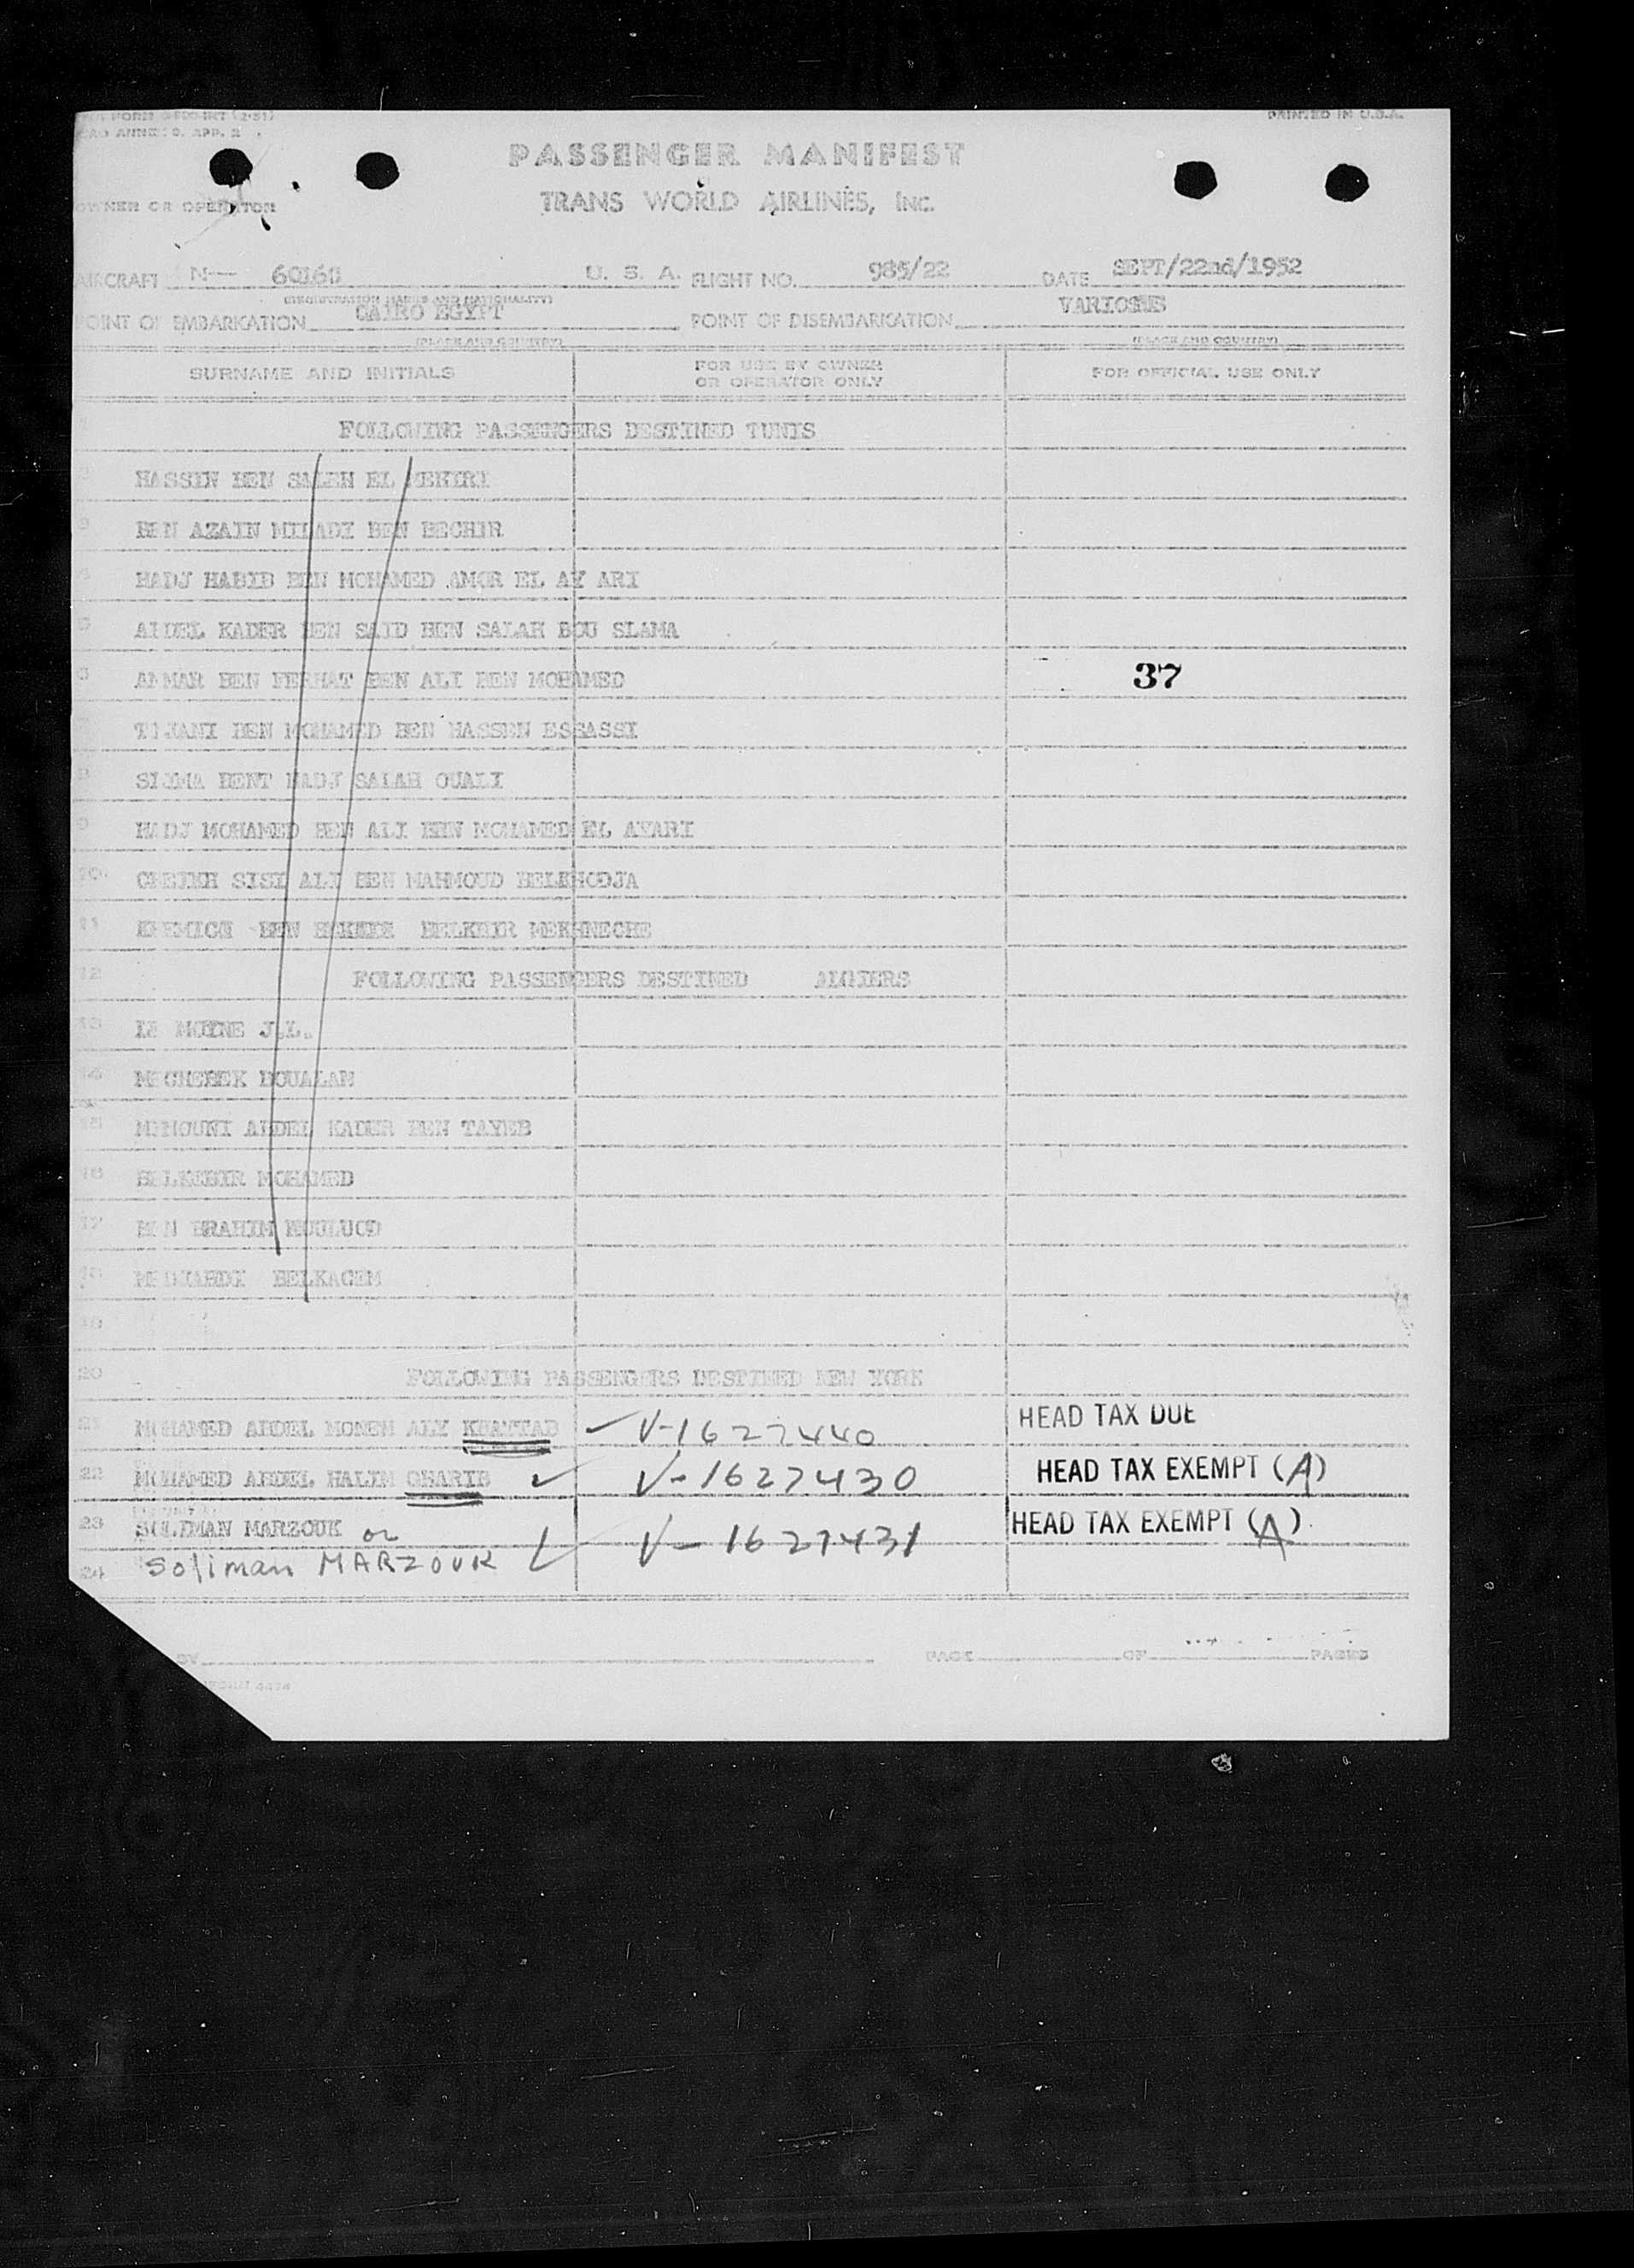 PRINTED IN U.S.A.
ANNEX 9, APP. 2
PASSENGER MANIFEST
OWNER OR OPERATOR
TRANS WORLD AIRLINES, INC.
AIRCRAFT N— 60160 U. S. A. FLIGHT NO. 985/22 DATE SEPT/22nd/1952
(REGISTRATION MARKS AND NATIONALITY)
POINT OF EMBARKATION CAIRO EGYPT POINT OF DISEMBARKATION
(PLACE AND COUNTRY) (PLACE AND COUNTRY)
SURNAME AND INITIALS FOR USE BY OWNER OR OPERATOR ONLY FOR OFFICIAL USE ONLY
FOLLOWING PASSENGERS DESTINED TUNIS
HASSIN BEN SALEH EL
BEN AZAIN MILADI BEN BECHIR
HADJ HABIB BEN MOHAMED AMOR EL AY ARI
ABDEL KADER BEN SAID BEN SALAH BOU SLAMA
AMMAR BEN FERHAT BEN ALI BEN MOHAMED 37
TIJANI BEN MOHAMED BEN HASSEN ESSASSI
BENT HADJ SALAH OUALI
9 HADJ MOHAMED BEN ALI BEN MOHAMED EL AYARI
10 CHEIKH SISI ALI BEN MAHMOUD BELKHODJA
11 BEN
12 FOLLOWING PASSENGERS DESTINED ALGIERS
13 LE MOYNE J.L.
14 MECHEREK DOUALAN
15 MIMOUNI ABDEL KADER BEN TAYEB
16 BELKEBIR MOHAMED
17 BEN BRAHIM MOULUOD
18 BELKACEM
19
20 FOLLOWING PASSENGERS DESTINED NEW YORK
21 MOHAMED ABDEL MONEM ALY KHATTAB V-1627440 HEAD TAX DUE
22 MOHAMED ABDEL HALIM GHARIB V-1627430 HEAD TAX EXEMPT (A)
23 SOLIMAN MARZOUK or V-1627431 HEAD TAX EXEMPT (A)
24 Soliman MARZOUK
BY PAGE OF PAGES